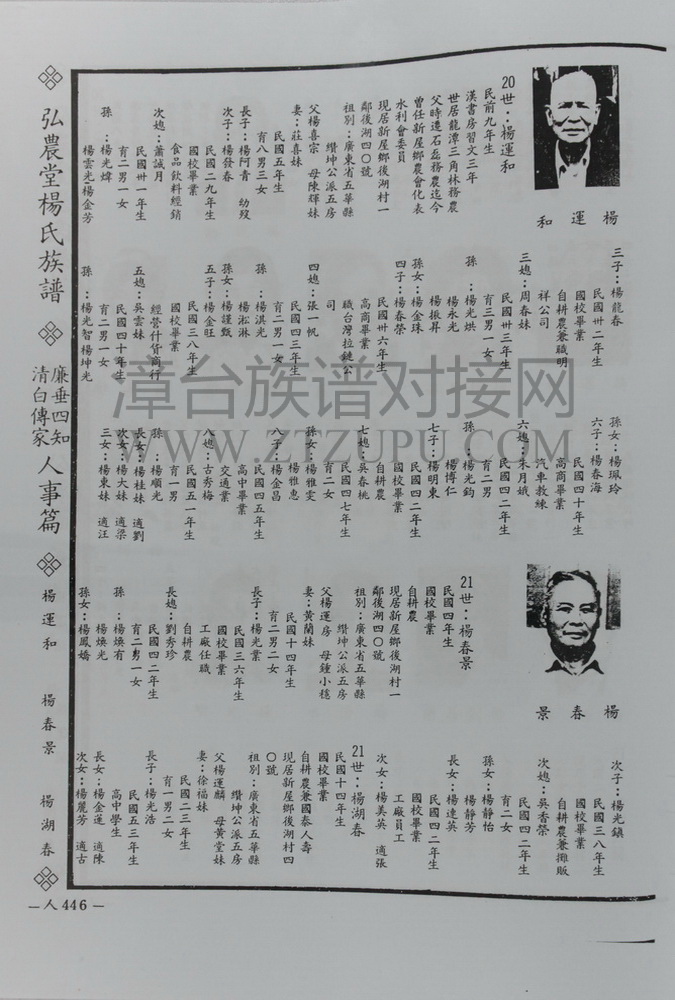 弘農堂楊氏族譜
廉垂四知
清白傳家
人事篇
楊運和
楊春景
楊湖春
楊運和
20世：楊運和
民前九年生
漢書房習文三年
世居龍潭三角林務農
父時遷石磊務農迄今
曾任新屋鄉農會代表
水利會委員
現居新屋鄉後湖村一
鄰後湖四〇號
祖別：廣東省五華縣
纘坤公派五房
父楊喜宗 母陳輝妹
妻：莊喜妹
民國五年生
育八男三女
長子：楊阿青 幼歿
次子：楊發春
民國二九年生
國校畢業
食品飲料經銷
次媳：蕭誠月
民國卅一年生
育二男一女
孫：楊光煒
楊雲光楊金芳
三子：楊龍春
民國卅二年生
國校畢業
自耕農兼職明
祥公司
三媳：周春妹
民國卅三年生
育三男一女
孫：楊光烘
楊永光
楊振昇
孫女：楊金珠
四子：楊春榮
民國卅六年生
高商畢業
職台灣拉鏈公
司
四媳：張一帆
民國四三年生
育二男一女
孫：楊淇光
楊淞淋
孫女：楊謹甄
五子：楊金旺
民國三八年生
國校畢業
經營什貨商行
五媳：吳雲妹
民國四十年生
育二男一女
孫：楊光智楊坤光
孫女：楊珮玲
六子：楊春海
民國四十年生
高商畢業
汽車教練
六媳：朱月娥
民國四二年生
育二男
孫：楊光鈞
楊博仁
七子：楊明東
民國四二年生
國校畢業
自耕農
七媳：吳春桃
民國四七年生
育二女
孫女：楊雅雯
楊雅惠
八子：楊金昌
民國四五年生
高中畢業
交通業
八媳：古秀梅
民國五一年生
育一男
孫：楊順光
長女：楊桂妹 適劉
次女：楊大妹 適梁
三女：楊東妹 適汪
楊春景
21世：楊春景
民國四年生
國校畢業
自耕農
現居新屋鄉後湖村一
鄰後湖四〇號
祖別：廣東省五華縣
纘坤公派五房
父楊運房 母鍾小穩
妻：黃蘭妹
民國十四年生
育二男二女
長子：楊光業
民國三六年生
國校畢業
工廠任職
自耕農
長媳：劉秀珍
民國四二年生
育二男一女
孫：楊煥有
楊煥光
孫女：楊鳳嬌
次子：楊光鎮
民國三八年生
國校畢業
自耕農兼攤販
次媳：吳香榮
民國四二年生
育二女
孫女：楊靜怡
楊靜芳
長女：楊達英
民國四二年生
國校畢業
工廠員工
次女：楊美英 適張
21世：楊湖春
民國十四年生
國校畢業
自耕農兼國泰人壽
現居新屋鄉後湖村四
〇號
祖別：廣東省五華縣
纘坤公派五房
父楊運麟 母黃堂妹
妻：徐福妹
民國二三年生
育一男二女
長子：楊光浩
民國五三年生
高中學生
長女：楊金蓮 適陳
次女：楊麗芳 適古
—人446—
漳台族谱对接网
WWW.ZTZUPU.COM